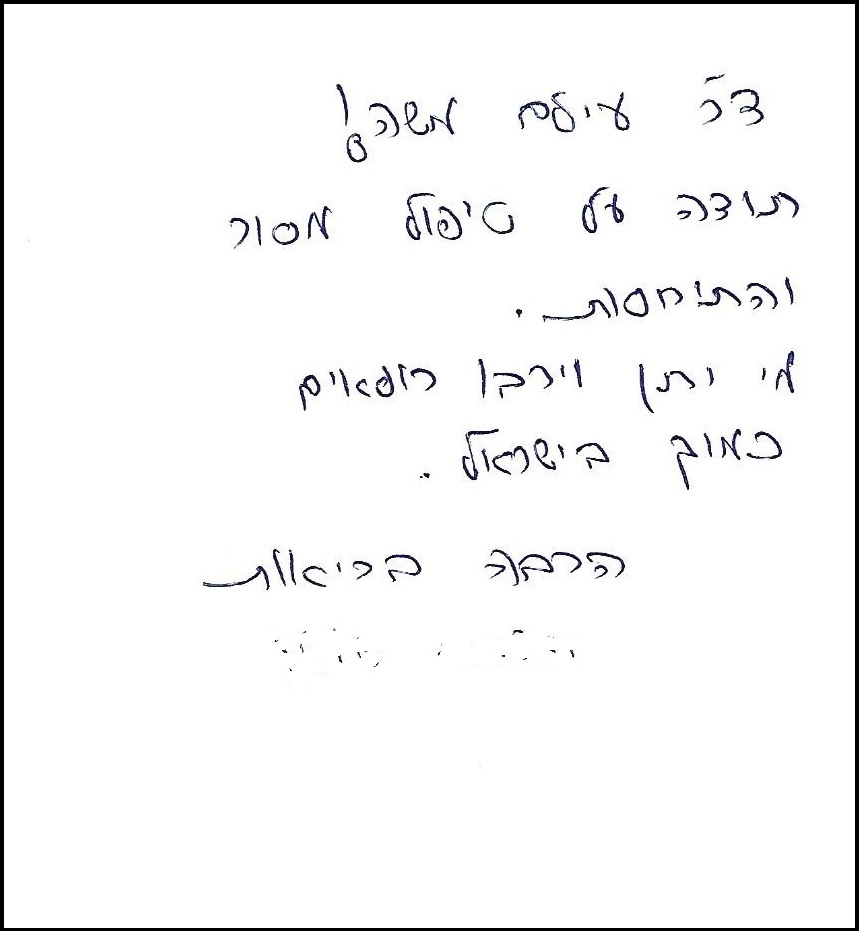 ד"ר עילם משה!
תודה על טיפול מסור
והתיחסות.
מי יתן וירבו רופאים
כמוך בישראל.
הרבה בריאות